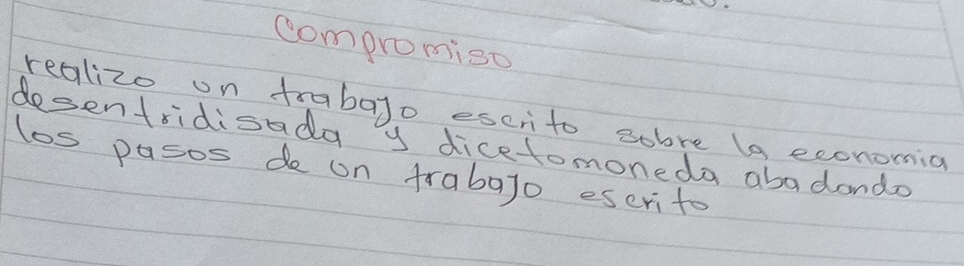 Compromiso
realizo un trabajo escrito sobre la economia
desentridisada y dicetomoneda abadando
los pasos de un trabajo escrito